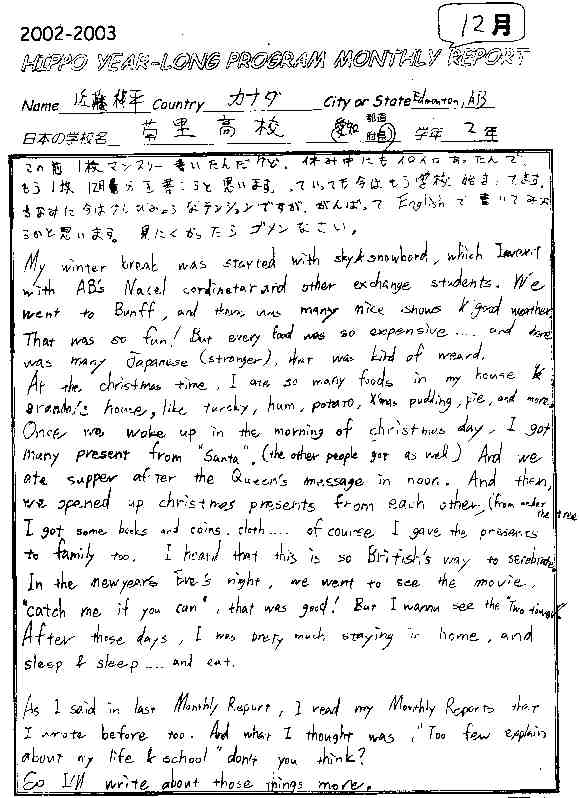 12月
2002-2003
HIPPO YEAR-LONG PROGRAM MONTHLY REPORT
Name 佐藤 平 Country カナダ City or State Edmonton, AB
日本の学校名 菊里高校 愛知 都道府県 学年 2年
この前1枚マンスリー書いたんだけど、休み中にもイロイロあったんで、
もう1枚12月分を書こうと思います。っていっても今はもう学校始まってます。
ちなみに今は少しびみょうなテンションですが、がんばって Englishで書いてみ
ようかと思います。見にくかったらゴメンなさい。
My winter break was started with sky & snowbord, which I went
with AB's Nacel cordinetar and other exchange students. We
went to Banff, and there was many nice shows & good weather.
That was so fun! But every food was so expensive .... and there
was many Japanese (stranger), that was kind of weard.
At the christmas time, I ate so many foods in my house &
grandma's house, like turcky, hum, potato, X'mas pudding, pie, and more.
Once we woke up in the morning of christmas day, I got
many present from "Santa". (the other people got as well) And we
ate supper after the Queen's message in noon. And then,
we opened up christmas presents from each other, (from under the tree
I got some books and coins, cloth .... of course I gave the presents
to family too. I heard that this is so British's way to serebrate.
In the newyears Eve's night, we went to see the movie,
"catch me if you can", that was good! But I wanna see the "Two towers".
After those days, I was prety much staying in home, and
sleep & sleep .... and eat.
As I said in last Monthly Report, I read my Monthly Reports that
I wrote before too. And what I thought was, "Too few explain
about my life & school" don't you think?
So I'll write about those things more.